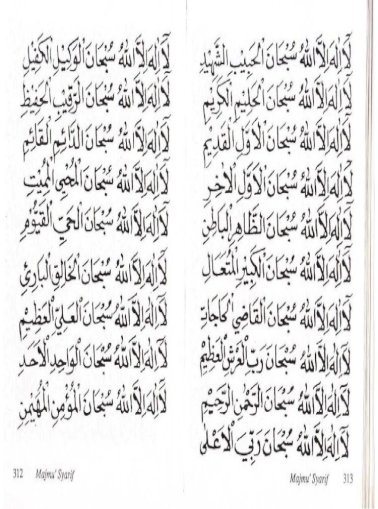 لَا إِلٰهَ إِلَّا اللّٰهُ سُبْحَانَ الْوَكِيْلِ الْكَفِيْلِ
لَا إِلٰهَ إِلَّا اللّٰهُ سُبْحَانَ الرَّقِيْبِ الْحَفِيْظِ
لَا إِلٰهَ إِلَّا اللّٰهُ سُبْحَانَ الدَّائِمِ الْقَائِمِ
لَا إِلٰهَ إِلَّا اللّٰهُ سُبْحَانَ الْمُحْيِى الْمُمِيْتِ
لَا إِلٰهَ إِلَّا اللّٰهُ سُبْحَانَ الْحَيِّ الْقَيُّوْمِ
لَا إِلٰهَ إِلَّا اللّٰهُ سُبْحَانَ الْخَالِقِ الْبَارِئِ
لَا إِلٰهَ إِلَّا اللّٰهُ سُبْحَانَ الْعَلِيِّ الْعَظِيْمِ
لَا إِلٰهَ إِلَّا اللّٰهُ سُبْحَانَ الْوَاحِدِ الْأَحَدِ
لَا إِلٰهَ إِلَّا اللّٰهُ سُبْحَانَ الْمُؤْمِنِ الْمُهَيْمِنِ
312 Majmu' Syarif
لَا إِلٰهَ إِلَّا اللّٰهُ سُبْحَانَ الْحَبِيْبِ الشَّهِيْدِ
لَا إِلٰهَ إِلَّا اللّٰهُ سُبْحَانَ الْحَلِيْمِ الْكَرِيْمِ
لَا إِلٰهَ إِلَّا اللّٰهُ سُبْحَانَ الْأَوَّلِ الْقَدِيْمِ
لَا إِلٰهَ إِلَّا اللّٰهُ سُبْحَانَ الْأَوَّلِ الْأٰخِرِ
لَا إِلٰهَ إِلَّا اللّٰهُ سُبْحَانَ الظَّاهِرِ الْبَاطِنِ
لَا إِلٰهَ إِلَّا اللّٰهُ سُبْحَانَ الْكَبِيْرِ الْمُتَعَالِ
لَا إِلٰهَ إِلَّا اللّٰهُ سُبْحَانَ الْقَاضِي الْحَاجَاتِ
لَا إِلٰهَ إِلَّا اللّٰهُ سُبْحَانَ رَبِّ الْعَرْشِ الْعَظِيْمِ
لَا إِلٰهَ إِلَّا اللّٰهُ سُبْحَانَ الرَّحْمٰنِ الرَّحِيْمِ
لَا إِلٰهَ إِلَّا اللّٰهُ سُبْحَانَ رَبِّيَ الْأَعْلٰى
Majmu' Syarif 313